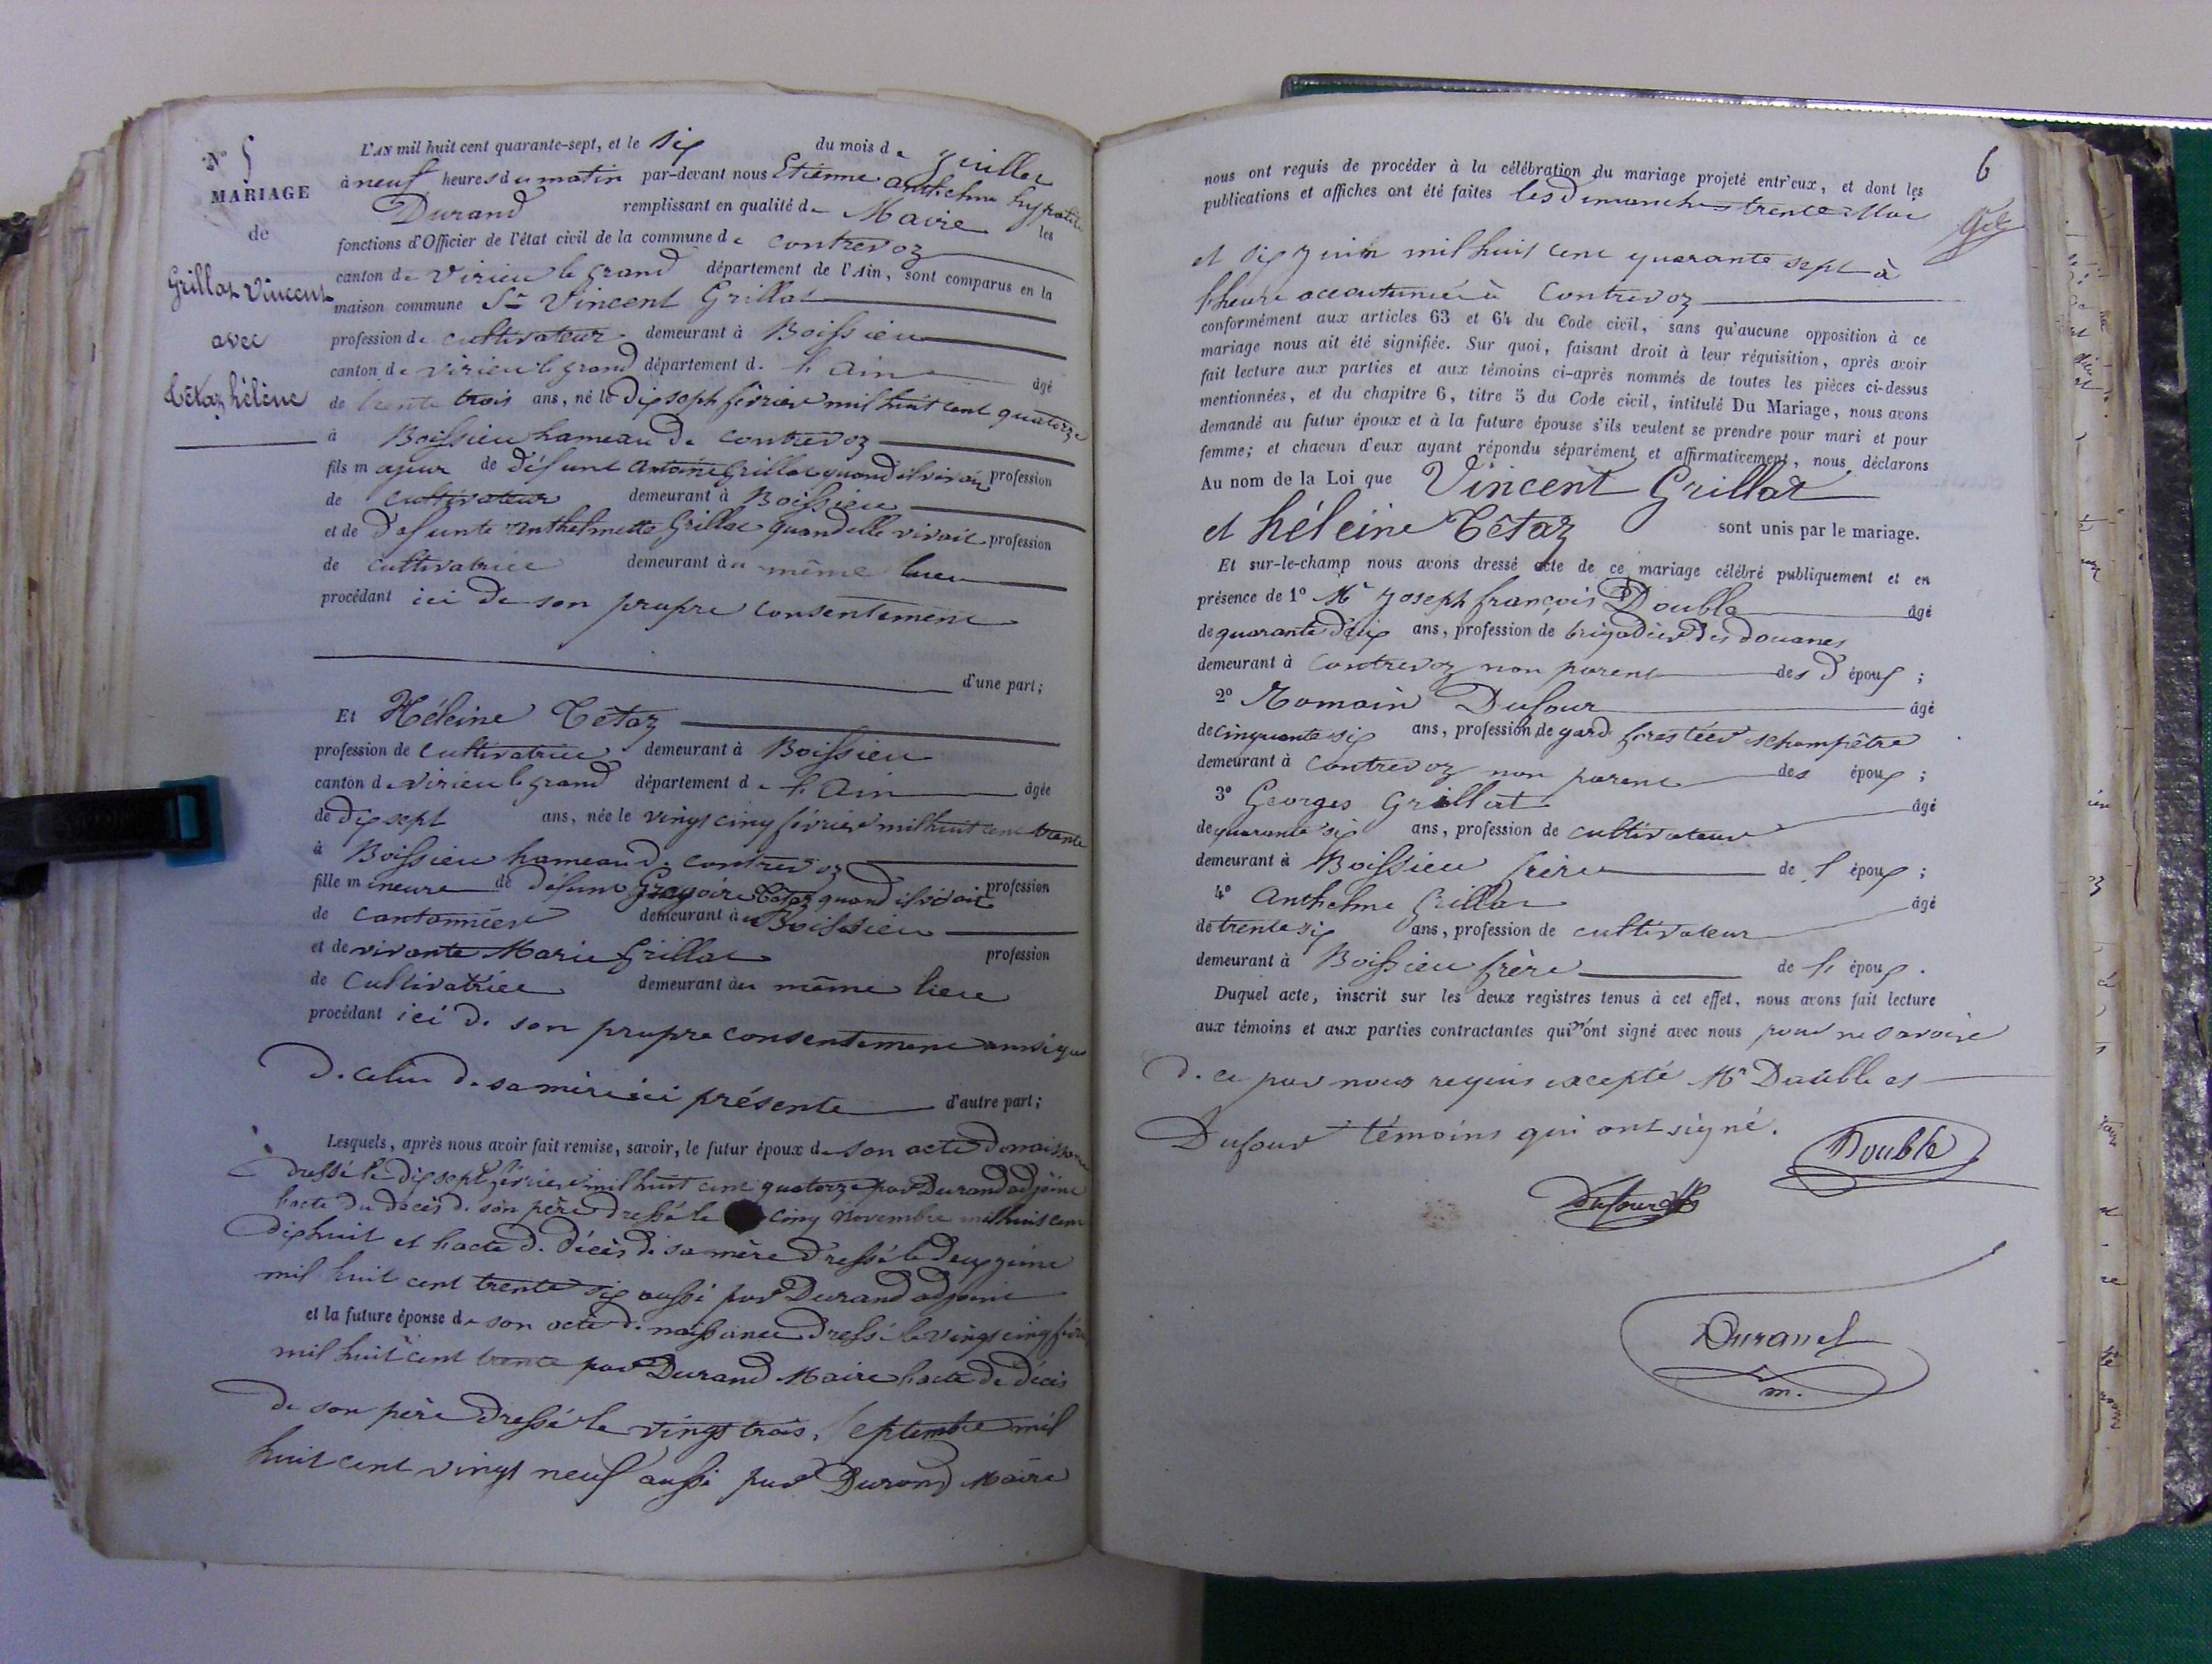 N° 5
MARIAGE
de
Grillat Vincent
avec
Têtaz hélène
L'AN mil huit cent quarante-sept, et le six du mois de juillet
à neuf heures du matin par-devant nous Etienne anthelme hypolite
Durand remplissant en qualité de Maire les
fonctions d'Officier de l'état civil de la commune de Contrevoz
canton de Virieu le grand département de l'Ain, sont comparus en la
maison commune Sr Vincent Grillat
profession de cultivateur demeurant à Boissieu
canton de Virieu le grand département de l'Ain âgé
de trente trois ans, né le dix sept fevrier mil huit cent quatorze
à Boissieu hameau de Contrevoz
fils majeur de défunt Antoine Grillat quand il vivait profession
de cultivateur demeurant à Boissieu
et de Defunte anthelmette Grillat quand elle vivait profession
de cultivatrice demeurant au même lieu
procédant ici de son propre consentement
d'une part;
Et Héleine Têtaz
profession de cultivatrice demeurant à Boissieu
canton de Virieu le grand département de l'Ain âgée
de dix sept ans, née le vingt cinq fevrier mil huit cent trente
à Boissieu hameau de Contrevoz
fille mineure de défunt Gregoire Têtaz quand il vivait profession
de Cantonnier demeurant à Boissieu
et de vivante Marie Grillat profession
de Cultivatrice demeurant au même lieu
procédant ici de son propre consentement ainsi que
de celui de sa mère ici présente d'autre part;
Lesquels, après nous avoir fait remise, savoir, le futur époux de son acte de naissance
dressé le dix sept février mil huit cent quatorze par Durand adjoint
l'acte du décès de son père dressé le cinq Novembre mil huit cent
dix huit et l'acte de décès de sa mère dressé le deux juin
mil huit cent trente six aussi par Durand adjoint
et la future épouse de son acte de naissance dressé le vingt cinq fevrier
mil huit cent trente par Durand Maire l'acte de décès
de son père dressé le vingt trois, septembre mil
huit cent vingt neuf aussi par Durand Maire
6
nous ont requis de procéder à la célébration du mariage projeté entr'eux, et dont les
publications et affiches ont été faites les Dimanches trente Mai
et six juin mil huit cent quarante sept à
l'heure accoutumée à Contrevoz
conformément aux articles 63 et 64 du Code civil, sans qu'aucune opposition à ce
mariage nous ait été signifiée. Sur quoi, faisant droit à leur réquisition, après avoir
fait lecture aux parties et aux témoins ci-après nommés de toutes les pièces ci-dessus
mentionnées, et du chapitre 6, titre 5 du Code civil, intitulé Du Mariage, nous avons
demandé au futur époux et à la future épouse s'ils veulent se prendre pour mari et pour
femme; et chacun d'eux ayant répondu séparément et affirmativement, nous déclarons
Au nom de la Loi que Vincent Grillat
et héleine Têtaz sont unis par le mariage.
Et sur-le-champ nous avons dressé acte de ce mariage célébré publiquement et en
présence de 1° Mr joseph françois Double âgé
de quarante deux ans, profession de brigadier des douanes
demeurant à Contrevoz non parent des d époux ;
2° Romain Dufour âgé
de cinquante six ans, profession de garde forestier & champêtre
demeurant à Contrevoz non parent des époux ;
3° Georges Grillat âgé
de quarante six ans, profession de cultivateur
demeurant à Boissieu frère de l'époux ;
4° Anthelme Grillat âgé
de trente six ans, profession de cultivateur
demeurant à Boissieu frère de l'époux.
Duquel acte, inscrit sur les deux registres tenus à cet effet, nous avons fait lecture
aux témoins et aux parties contractantes qui n'ont signé avec nous pour ne savoir
de ce par nous requis excepté Mr Double et
Dufour témoins qui ont signé.
Double
Dufour
Durand
m.